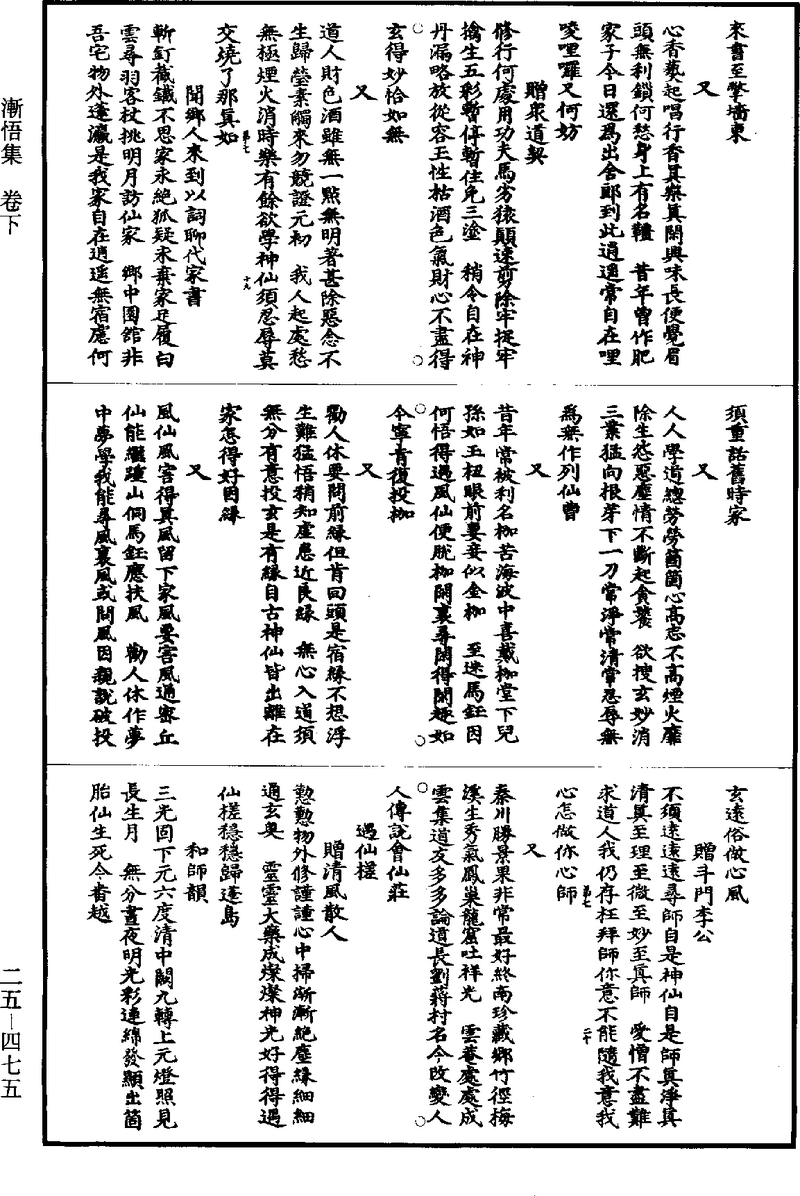 漸悟集　卷下
來書至孥墻東
又
心香爇起唱行香真樂真閑興味長便覺眉
頭無利鎖何愁身上有名韁　昔年曾作肥
家子今日還爲出舍郎到此逍遥常自在哩
唛哩囉又何妨
贈衆道契
修行何處用功夫馬劣猿顛速剪除牢捉牢
擒生五彩暫停暫住免三塗　稍令自在神
丹漏略放從容玉性枯酒色氣財心不盡得
玄得妙恰如無
又
道人財色酒雖無一點無明著甚除惡念不
生歸瑩素觸來勿競證元初　我人起處愁
無極煙火消時樂有餘欲學神仙須忍辱莫
交燒了那真如
第十七　十九
聞鄉人來到以詞聊代家書
斬釘截鐵不思家永絕狐疑永棄家足履白
雲尋羽客杖挑明月訪仙家　鄉中園館非
吾宅物外蓬瀛是我家自在逍遥無宿慮何
須重話舊時家
又
人人學道總勞勞箇箇心高志不高煙火靡
除生忿惡塵情不斷起貪饕　欲搜玄妙消
三業猛向根芽下一刀常淨常清常忍辱無
爲無作列仙曹
又
昔年常被利名枷苦海波中喜戴枷堂下兒
孫如玉杻眼前妻妾似金枷　至迷馬鈺因
何悟得遇風仙便脫枷閑裏尋閑得閑趣如
今寧肯復投枷
又
勸人休要問前緣但肯回頭是宿緣不想浮
生難猛悟稍知虛患近良緣　無心入道須
無分有意投玄是有緣自古神仙皆出離在
家怎得好因緣
又
風仙風害得真風留下家風要害風通密丘
仙能繼踵山侗馬鈺應扶風　勸人休作夢
中夢學我能尋風裏風或問風因親說破投
玄遠俗做心風
贈斗門李公
不須遠遠遠尋師自是神仙自是師真淨真
清真至理至微至妙至真師　愛憎不盡難
求道人我仍存枉拜師你意不能隨我意我
心怎做你心師
第七　二十
又
秦川勝景果非常最好終南珍藏鄉竹徑梅
溪生秀氣鳳巢龍窟吐祥光　雲菴處處成
雲集道友多多論道長劉蔣村名今改變人
人傳說會仙莊
遇仙槎
贈清風散人
懃懃物外修謹謹心中掃漸漸絕塵緣細細
通玄奧　靈靈大藥成燦燦神光好得得遇
仙槎穩穩歸蓬島
和師韻
三光固下元六度清中闕九轉上元燈照見
長生月　無分晝夜明光彩連綿發顯出箇
胎仙生死今番越
二五—四七五